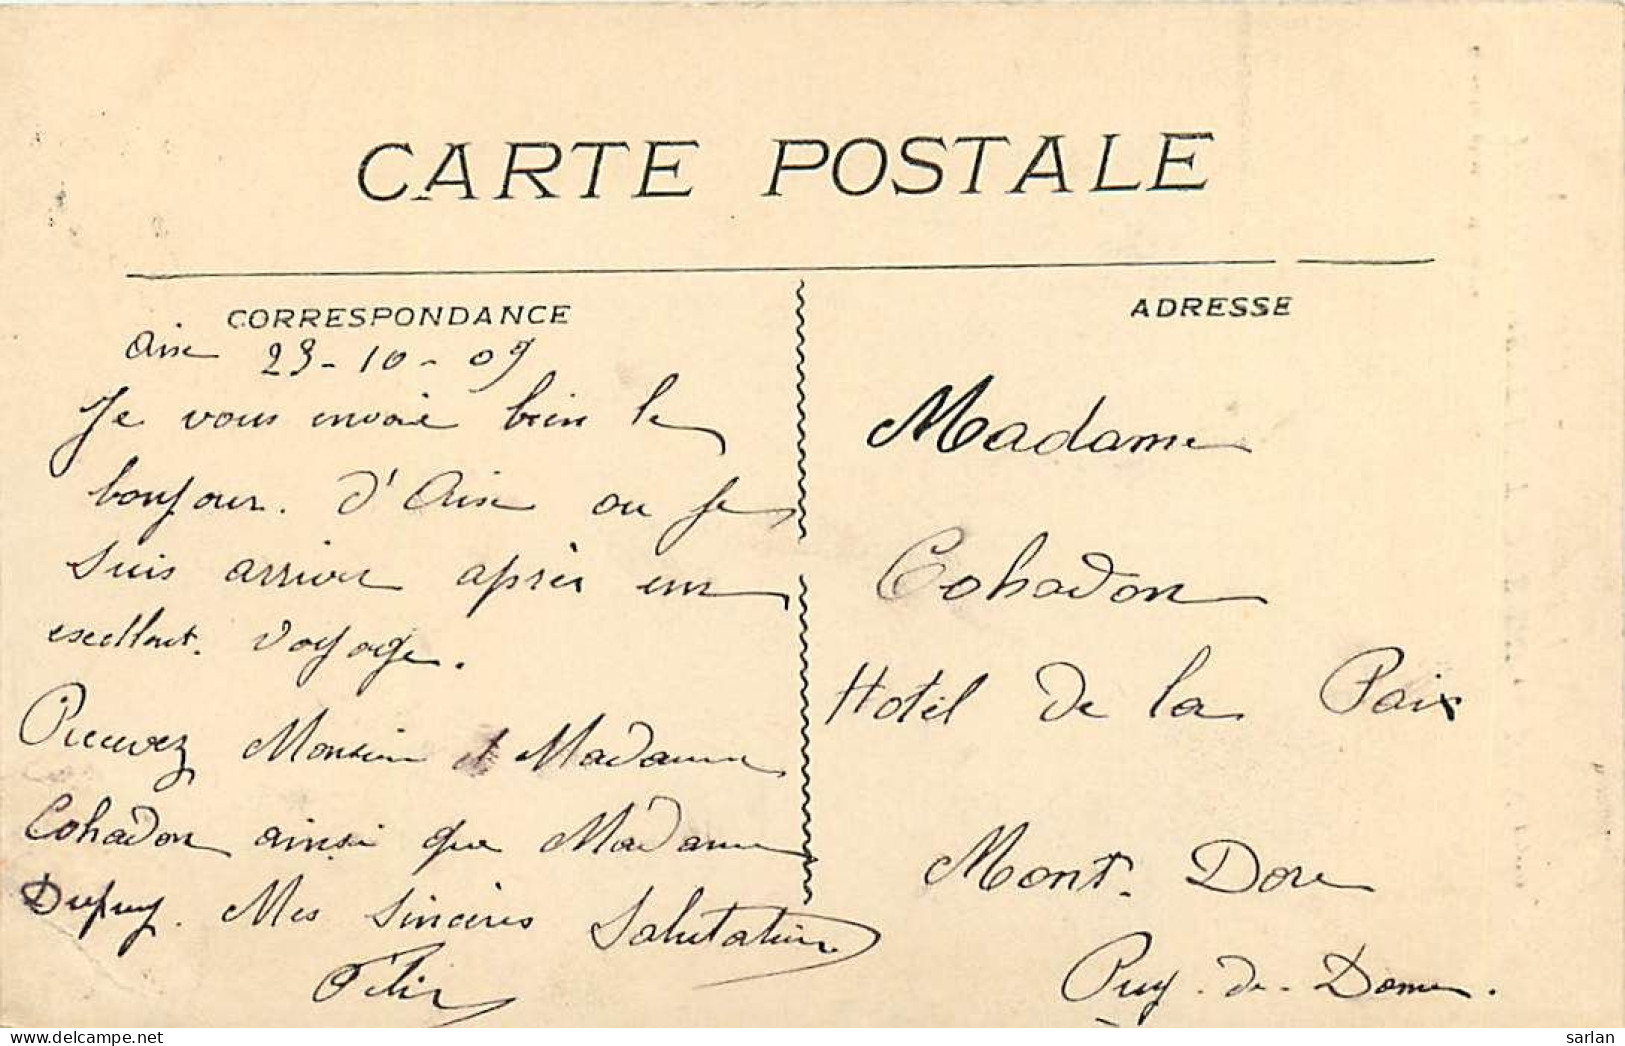 CARTE POSTALE
CORRESPONDANCE
23-10-09
Je vous envoie bien le
bonjour. d'Aix ou je
suis arriver après un
excellent. voyage.
Recevez Monsieur et Madame
Cohadon ainsi que Madame
Dupuy. Mes sincères Salutation
Félix
ADRESSE
Madame
Cohadon
Hotel de la Paix
Mont. Dore
Puy-de-Dome.
sarlan